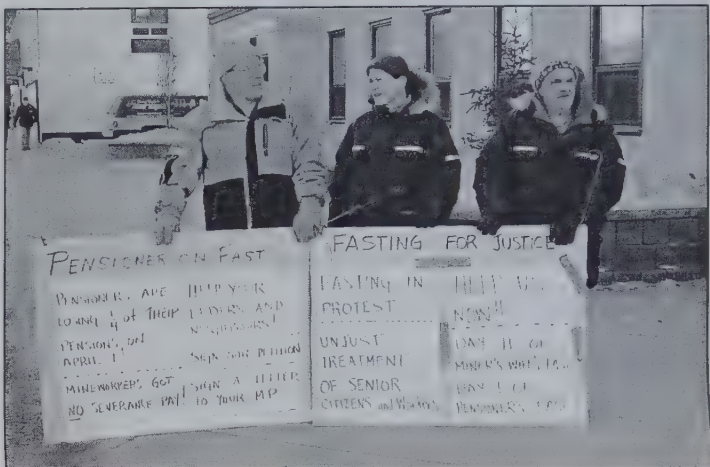 PENSIONER ON FAST
PENSIONERS ARE
LOSING 1/4 OF THEIR
PENSIONS ON
APRIL 1!
MINEWORKERS GOT
NO SEVERANCE PAY!
HELP YOUR
ELDERS AND
NEIGHBOURS!
SIGN OUR PETITION
SIGN A LETTER
TO YOUR MP
FASTING FOR JUSTICE
FASTING IN
PROTEST
UNJUST
TREATMENT
OF SENIOR
CITIZENS and Workers
HELP US
NOW!!
DAY 11 OF
MINER'S
DAY 1 OF
PENSIONER'S FAST